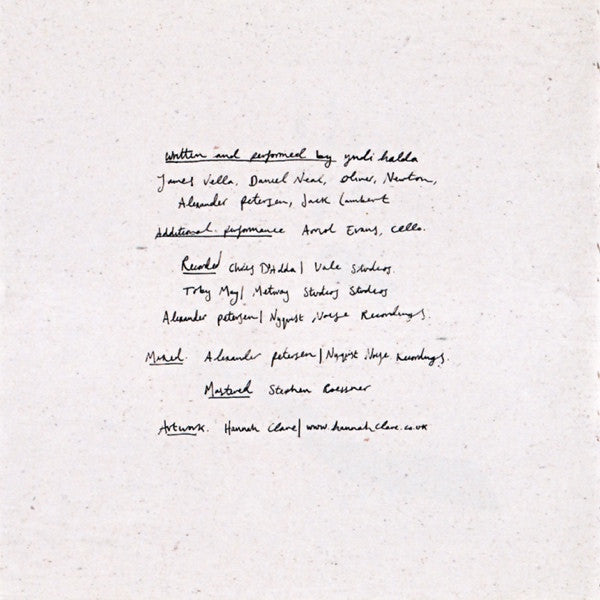 Written and performed by yndi halda
James Vella, Daniel Neal, Oliver, Newton,
Alexander Petersen, Jack Lambert
Additional performance Arnol Evans, cello.
Recorded Chris D'Adda | Vale Studios.
Toby May | Metway Studios Studios
Alexander petersen | Nyquist Noise Recordings.
Mixed. Alexander petersen | Nyquist Noise Recordings.
Mastered Stephen Roessner
Artwork. Hannah Clare | www.hannahclare.co.uk